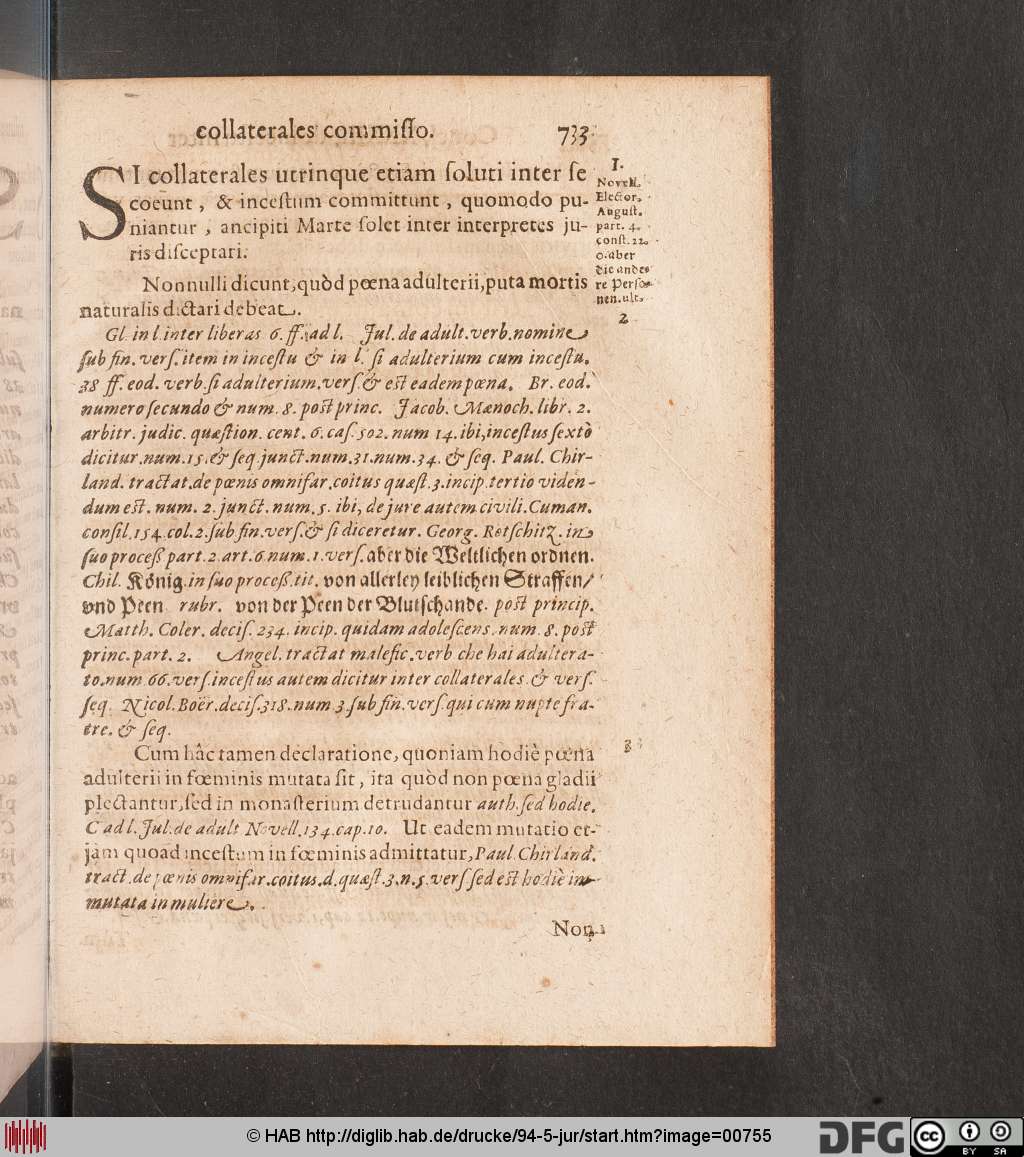 collaterales commiſſo. 733
SI collaterales utrinque etiam ſoluti inter ſe
coëunt, & inceſtum committunt, quomodo pu-
niantur, ancipiti Marte ſolet inter interpretes ju-
ris diſceptari.
1.
Novell.
Elector.
Auguſt.
part. 4.
conſt. 22.
o. aber
die ande
re Perſo-
nen. ult.
Nonnulli dicunt, quòd pœna adulterii, puta mortis
naturalis dictari debeat.
2
Gl. in l. inter liberas 6. ff. ad l. Jul. de adult. verb. nomine
ſub fin. verſ. item in inceſtu & in l. ſi adulterium cum inceſtu.
38 ff. eod. verb. ſi adulterium. verſ. & eſt eadem pœna. Br. eod.
numero ſecundo & num. 8. poſt princ. Jacob. Mænoch. libr. 2.
arbitr. judic. quæſtion. cent. 6. caſ. 502. num 14. ibi, inceſtus ſextò
dicitur. num. 15. & ſeq. junct. num. 31. num. 34. & ſeq. Paul. Chir-
land. tractat. de pœnis omnifar. coitus quæſt. 3. incip. tertio viden-
dum eſt. num. 2. junct. num. 5. ibi, de jure autem civili. Cuman.
conſil. 154. col. 2. ſub fin. verſ. & ſi diceretur. Georg. Rotſchitz. in
ſuo proceß part. 2. art. 6. num. 1. verſ. aber die Weltlichen ordnen.
Chil. König. in ſuo proceß. tit. von allerley leiblichen Straffen/
vnd Peen rubr. von der Peen der Blutſchande. poſt princip.
Matth. Coler. deciſ. 234. incip. quidam adoleſcens. num. 8. poſt
princ. part. 2. Angel. tractat malefic. verb che hai adultera-
to. num. 66. verſ. inceſtus autem dicitur inter collaterales & verſ.
ſeq. Nicol. Boër. deciſ. 318. num 3. ſub fin. verſ. qui cum nupte fra-
tre. & ſeq.
Cum hâc tamen declaratione, quoniam hodiè pœna
3
adulterii in fœminis mutata ſit, ita quòd non pœna gladii
plectantur, ſed in monaſterium detrudantur auth. ſed hodie.
C ad l. Jul. de adult Novell. 134. cap. 10. Ut eadem mutatio et-
jam quoad inceſtum in fœminis admittatur, Paul. Chirland.
tract. de pœnis omnifar. coitus. d. quæſt. 3. n. 5. verſ ſed eſt hodiè im-
mutata in muliere.
Non-
© HAB http://diglib.hab.de/drucke/94-5-jur/start.htm?image=00755
DFG
cc
BY SA